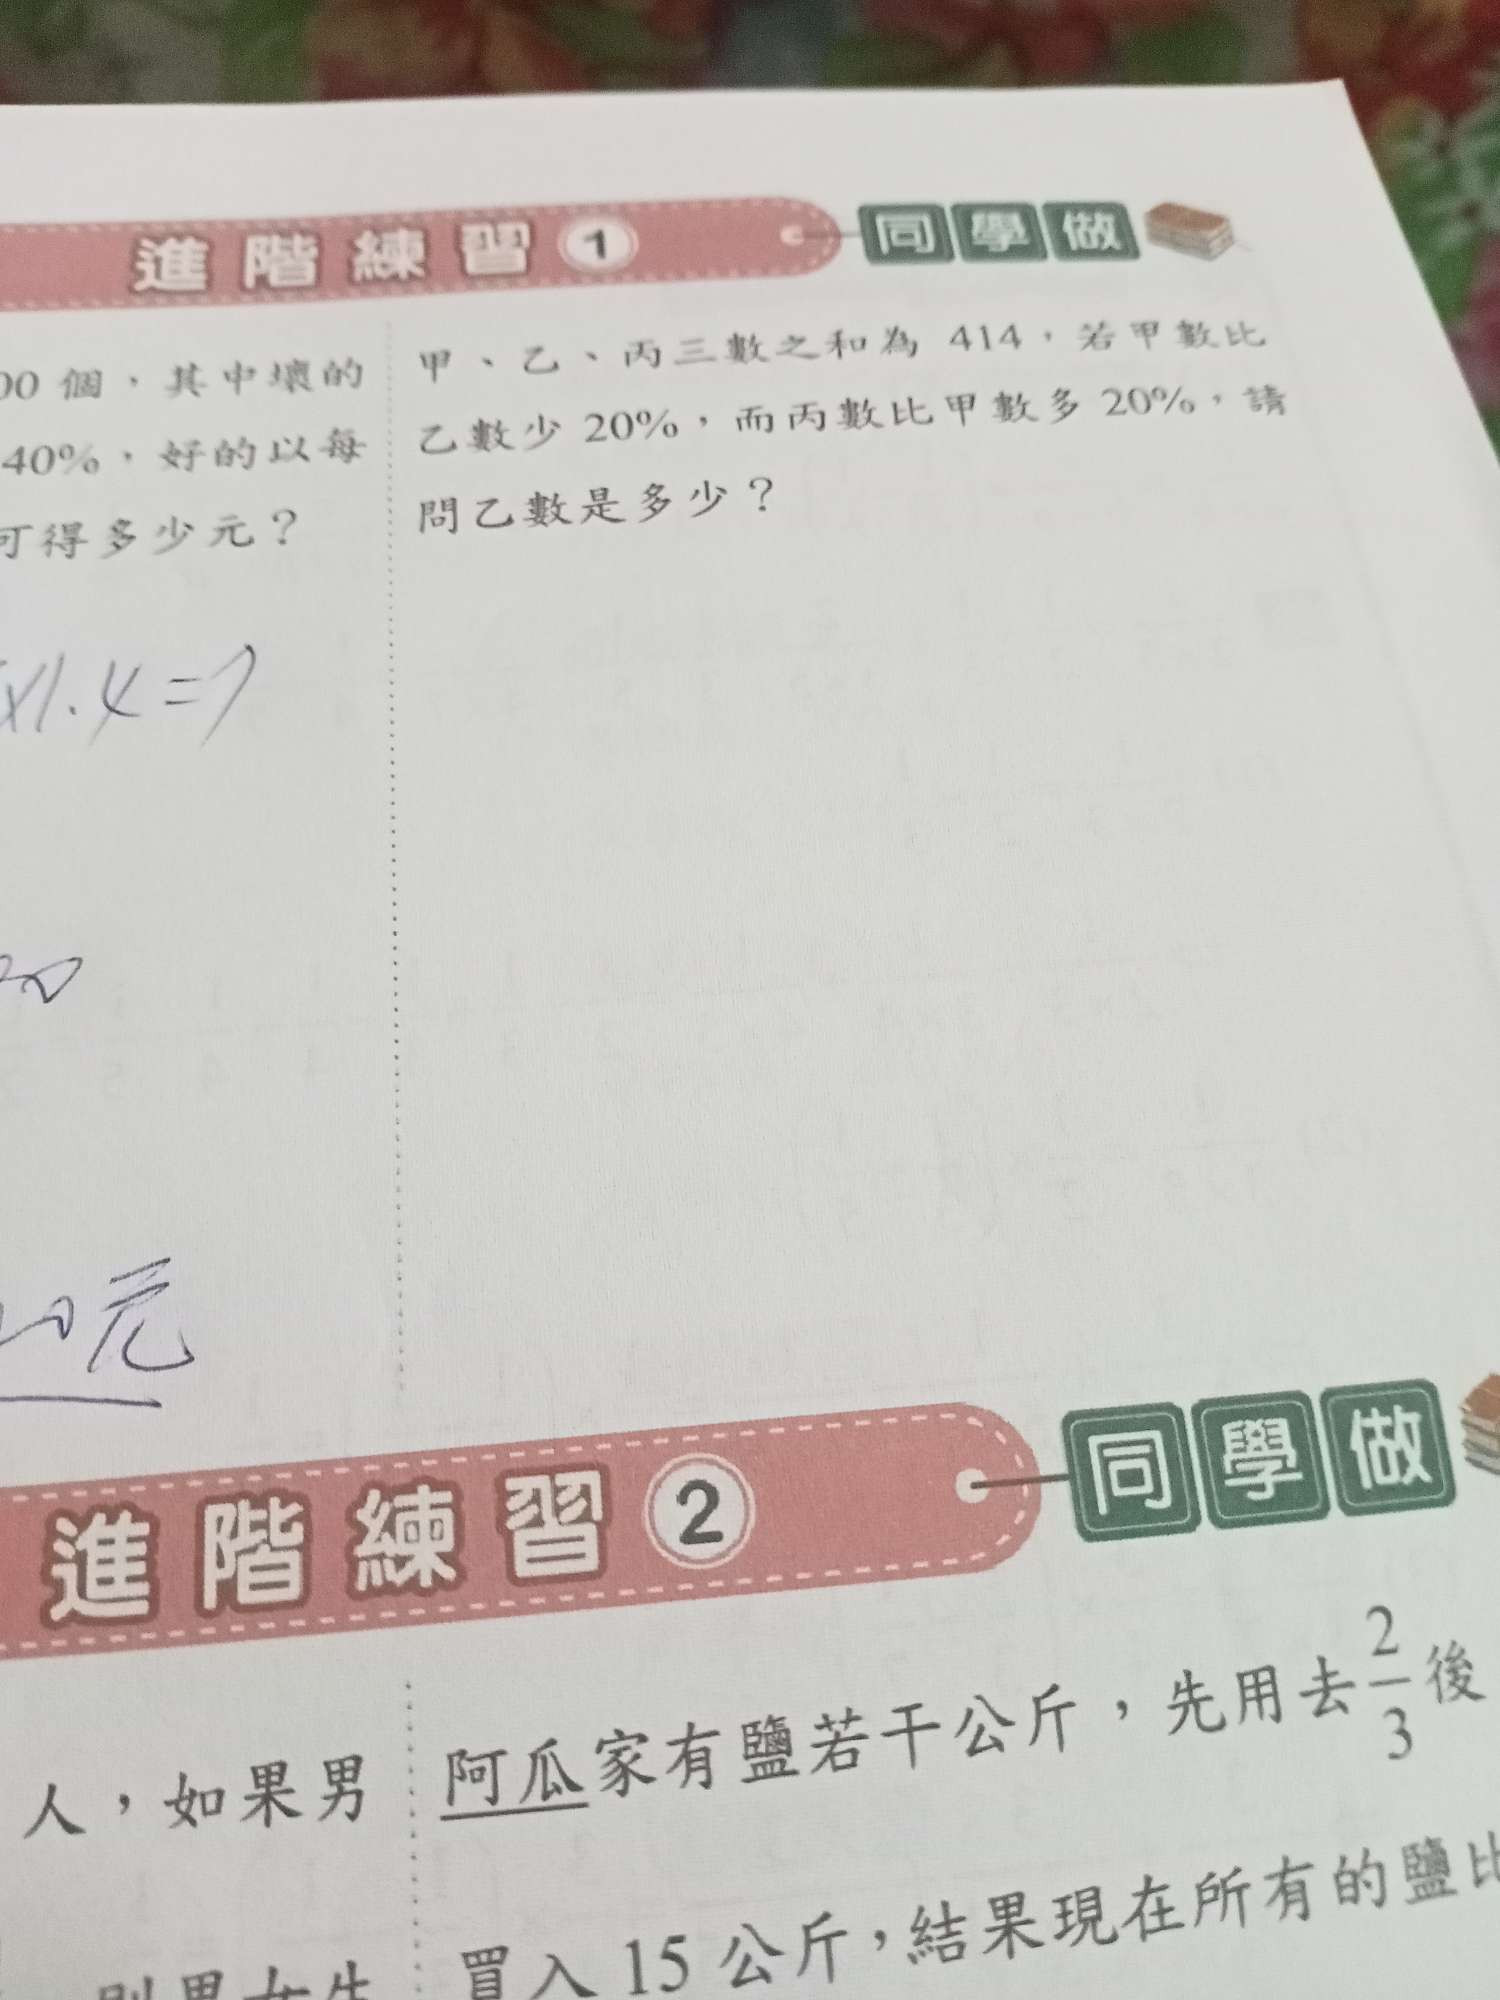 進階練習 1 同學做
00 個，其中壞的
40%，好的以每
可得多少元？
甲、乙、丙三數之和為 414，若甲數比
乙數少 20%，而丙數比甲數多 20%，請
問乙數是多少？
x1.4=7
元
進階練習 2 同學做
人，如果男
則男女生
阿瓜家有鹽若干公斤，先用去 2/3 後
買入 15 公斤，結果現在所有的鹽比